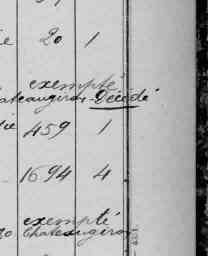 20 1
exempté
Chateaugiron Décédé
459 1
1694 4
exempté
Chateaugiron